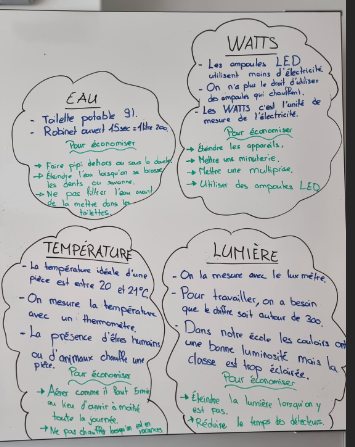 EAU
- Toilette potable 9l.
- Robinet ouvert 15sec = 1 litre 200
Pour économiser
→ Faire pipi dehors ou sous la douche
→ Éteindre l'eau lorsqu'on se brosse
les dents ou savonne.
→ Ne pas filtrer l'eau avant
de la mettre dans les
toilettes.
WATTS
- Les ampoules LED
utilisent moins d'électricité.
- On n'a plus le droit d'utiliser
des ampoules qui chauffent.
- Les WATTS c'est l'unité de
mesure de l'électricité.
Pour économiser
→ Éteindre les appareils,
→ Mettre une minuterie,
→ Mettre une multiprise,
→ Utiliser des ampoules LED
TEMPÉRATURE
- La température idéale d'une
pièce est entre 20 et 21°C
- On mesure la température
avec un thermomètre.
- La présence d'êtres humains
ou d'animaux chauffe une
pièce.
Pour économiser
→ Aérer comme il faut 5min
au lieu d'ouvrir à moitié
toute la journée.
→ Ne pas chauffer lorsqu'on est en
vacances
LUMIÈRE
- On la mesure avec le luxmètre.
- Pour travailler, on a besoin
que le chiffre soit autour de 300.
- Dans notre école les couloirs ont
une bonne luminosité mais la
classe est trop éclairée.
Pour économiser
→ Éteindre la lumière lorsqu'on y
est pas.
→ Réduire le temps des détecteurs.